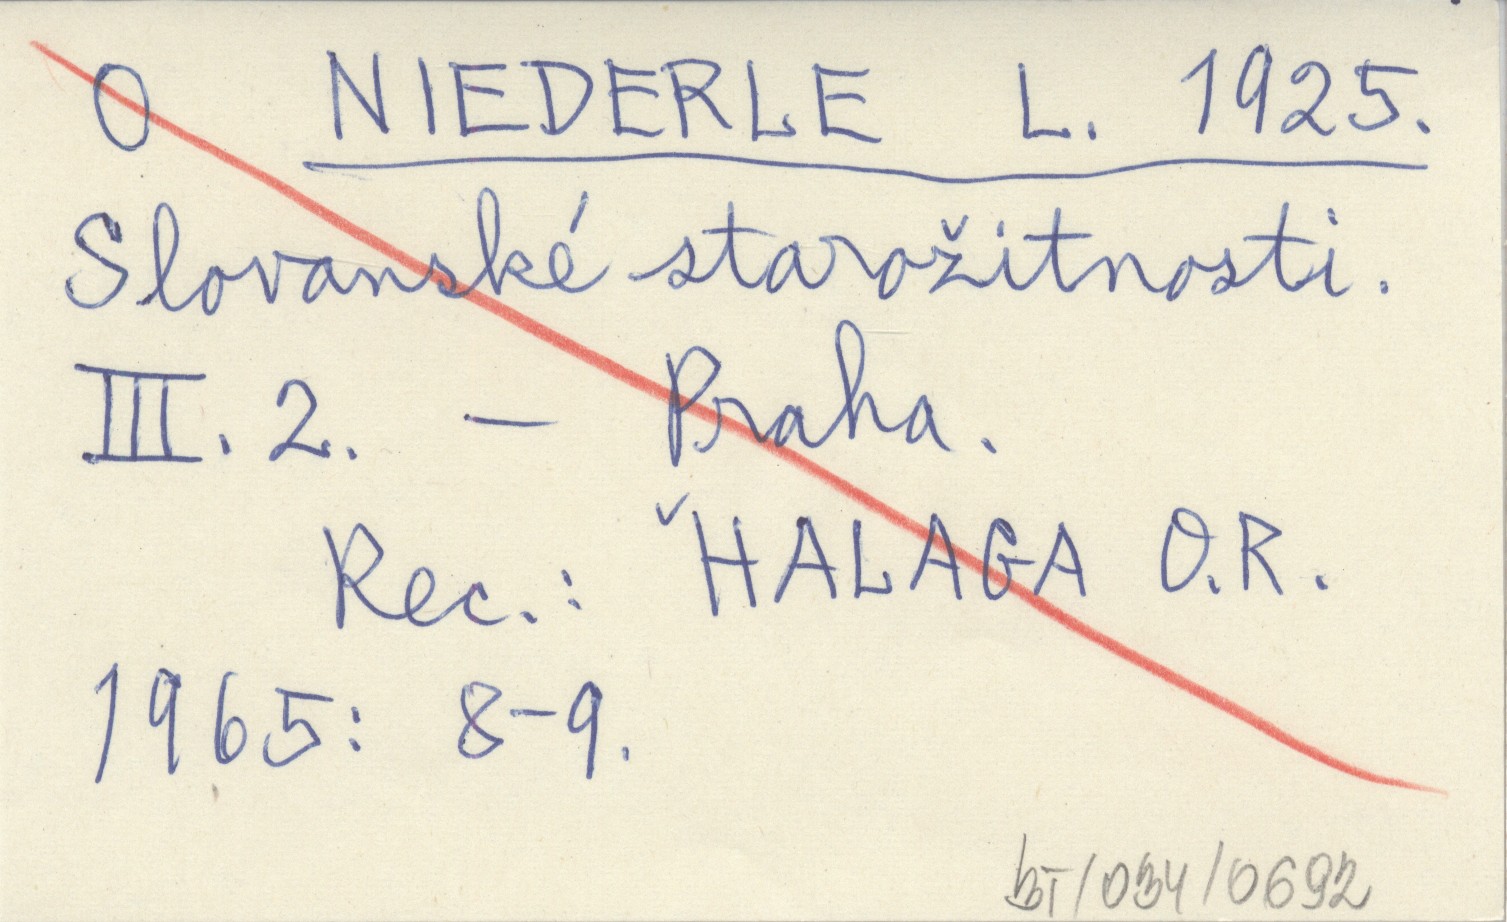 O NIEDERLE L. 1925.
Slovanské starožitnosti.
III. 2. — Praha.
Rec.: ˇHALAGA O.R.
1965: 8-9.
BT/034/0692